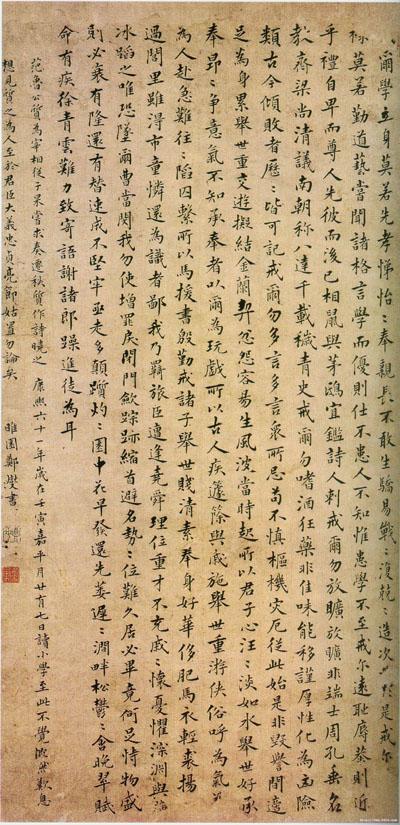 〻爾學立身莫若先孝悌怡〻奉親長不敢生驕易戰〻復兢〻造次必於是戒尔
祿莫若勤道藝嘗聞諸格言學而優則仕不患人不知惟患學不至戒尔遠耻辱恭則近
乎禮自卑而尊人先彼而後己相鼠與茅鴟宜鑑詩人刺戒爾勿放曠放曠非端士周孔垂名
教齊梁尚清議南朝称八達千載穢青史戒爾勿嗜酒狂藥非佳味能移謹厚性化為凶險
類古今傾敗者歷〻皆可記戒爾勿多言多言衆所忌苟不慎樞機灾厄從此始是非毀譽間適
足為身累舉世重交遊擬結金蘭契忿怨容易生風波當時起所以君子心汪〻淡如水舉世好承
奉昂〻爭意氣不知承奉者以爾為玩戲所以古人疾籧篨與戚施舉世重游俠俗呼為氣义
為人赴急難往〻陷囚繫所以馬援書殷勤戒諸子舉世賤清素奉身好華侈肥馬衣輕裘揚
過閭里雖得市童憐還為識者鄙我乃羈旅臣遭逢堯舜理位重才不充戚〻懷憂懼深淵與薄
冰蹈之唯恐墜爾曹當閔我勿使增罪戾閉門歛踪跡縮首避名勢〻位難久居必畢竟何足恃物盛
則必衰有隆還有替速成不堅牢亟走多顛躓灼〻園中花早發還先萎遲〻澗畔松鬱〻含晚翠賦
命有疾徐青雲難力致寄語謝諸郎躁進徒為耳
范魯公質為宰相從子杲嘗求奏遷秩質作詩曉之 康熙六十一年歲在壬寅嘉平月廿有七日讀小學至此不覺慨然歎息
想見質之為人至於君臣大義忠貞亮節姑置勿論矣 睢園鄭燮書